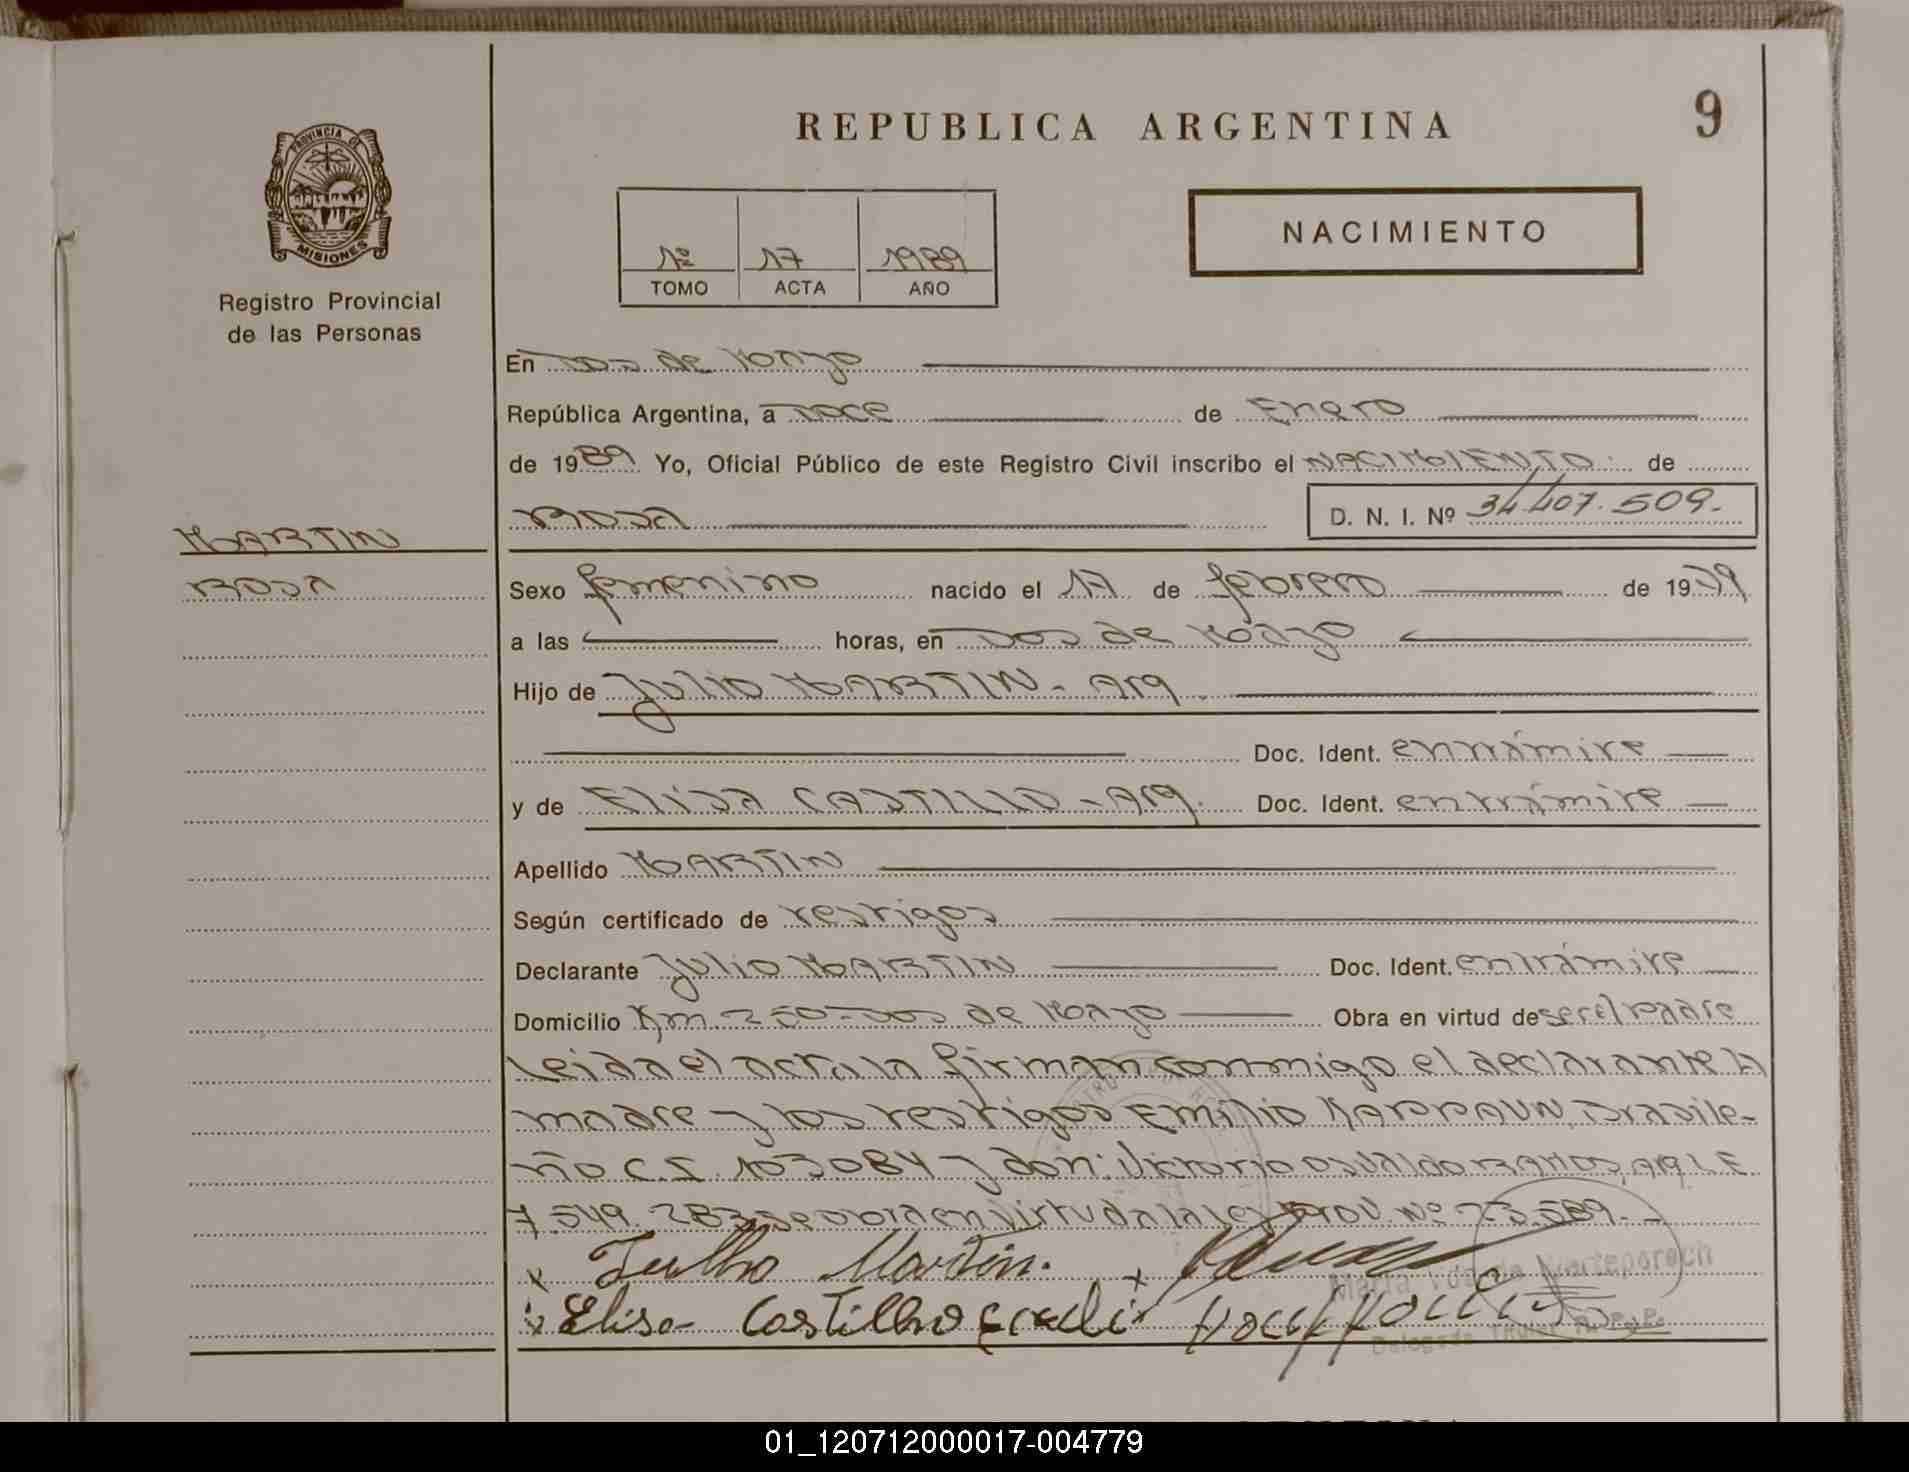 REPUBLICA ARGENTINA
9
PROVINCIA DE
MISIONES
Registro Provincial
de las Personas
1º 17 1989
TOMO ACTA AÑO
NACIMIENTO
En Dos de Mayo
República Argentina, a Doce de Enero
de 1989 Yo, Oficial Público de este Registro Civil inscribo el NACIMIENTO de
ROSA
D. N. I. Nº 34.407.509.-
MARTIN
ROSA
Sexo femenino nacido el 17 de febrero de 1979
a las horas, en Dos de Mayo
Hijo de Julio MARTIN - Arg.
Doc. Ident. entrámite
y de ELISA CASTILLO - Arg. Doc. Ident. entrámite
Apellido MARTIN
Según certificado de testigos
Declarante Julio MARTIN Doc. Ident. entrámite
Domicilio Km. 250-Dos de Mayo Obra en virtud de ser el padre
Leida el acta la firman conmigo el declarante la
madre y los testigos Emilio Brasile-
ño C.I. 103084 y don: Victorio Osvaldo RAMOS, Arg L.E
7.549.283 se obra en virtud a la ley Nº 23.589.-
x Julho Martin. x
x Elisa Castilho
01_120712000017-004779